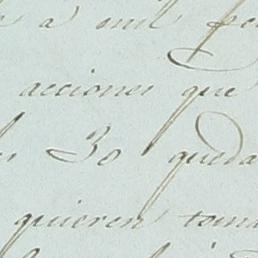 a mil
acciones que
30 queda
quieren toma